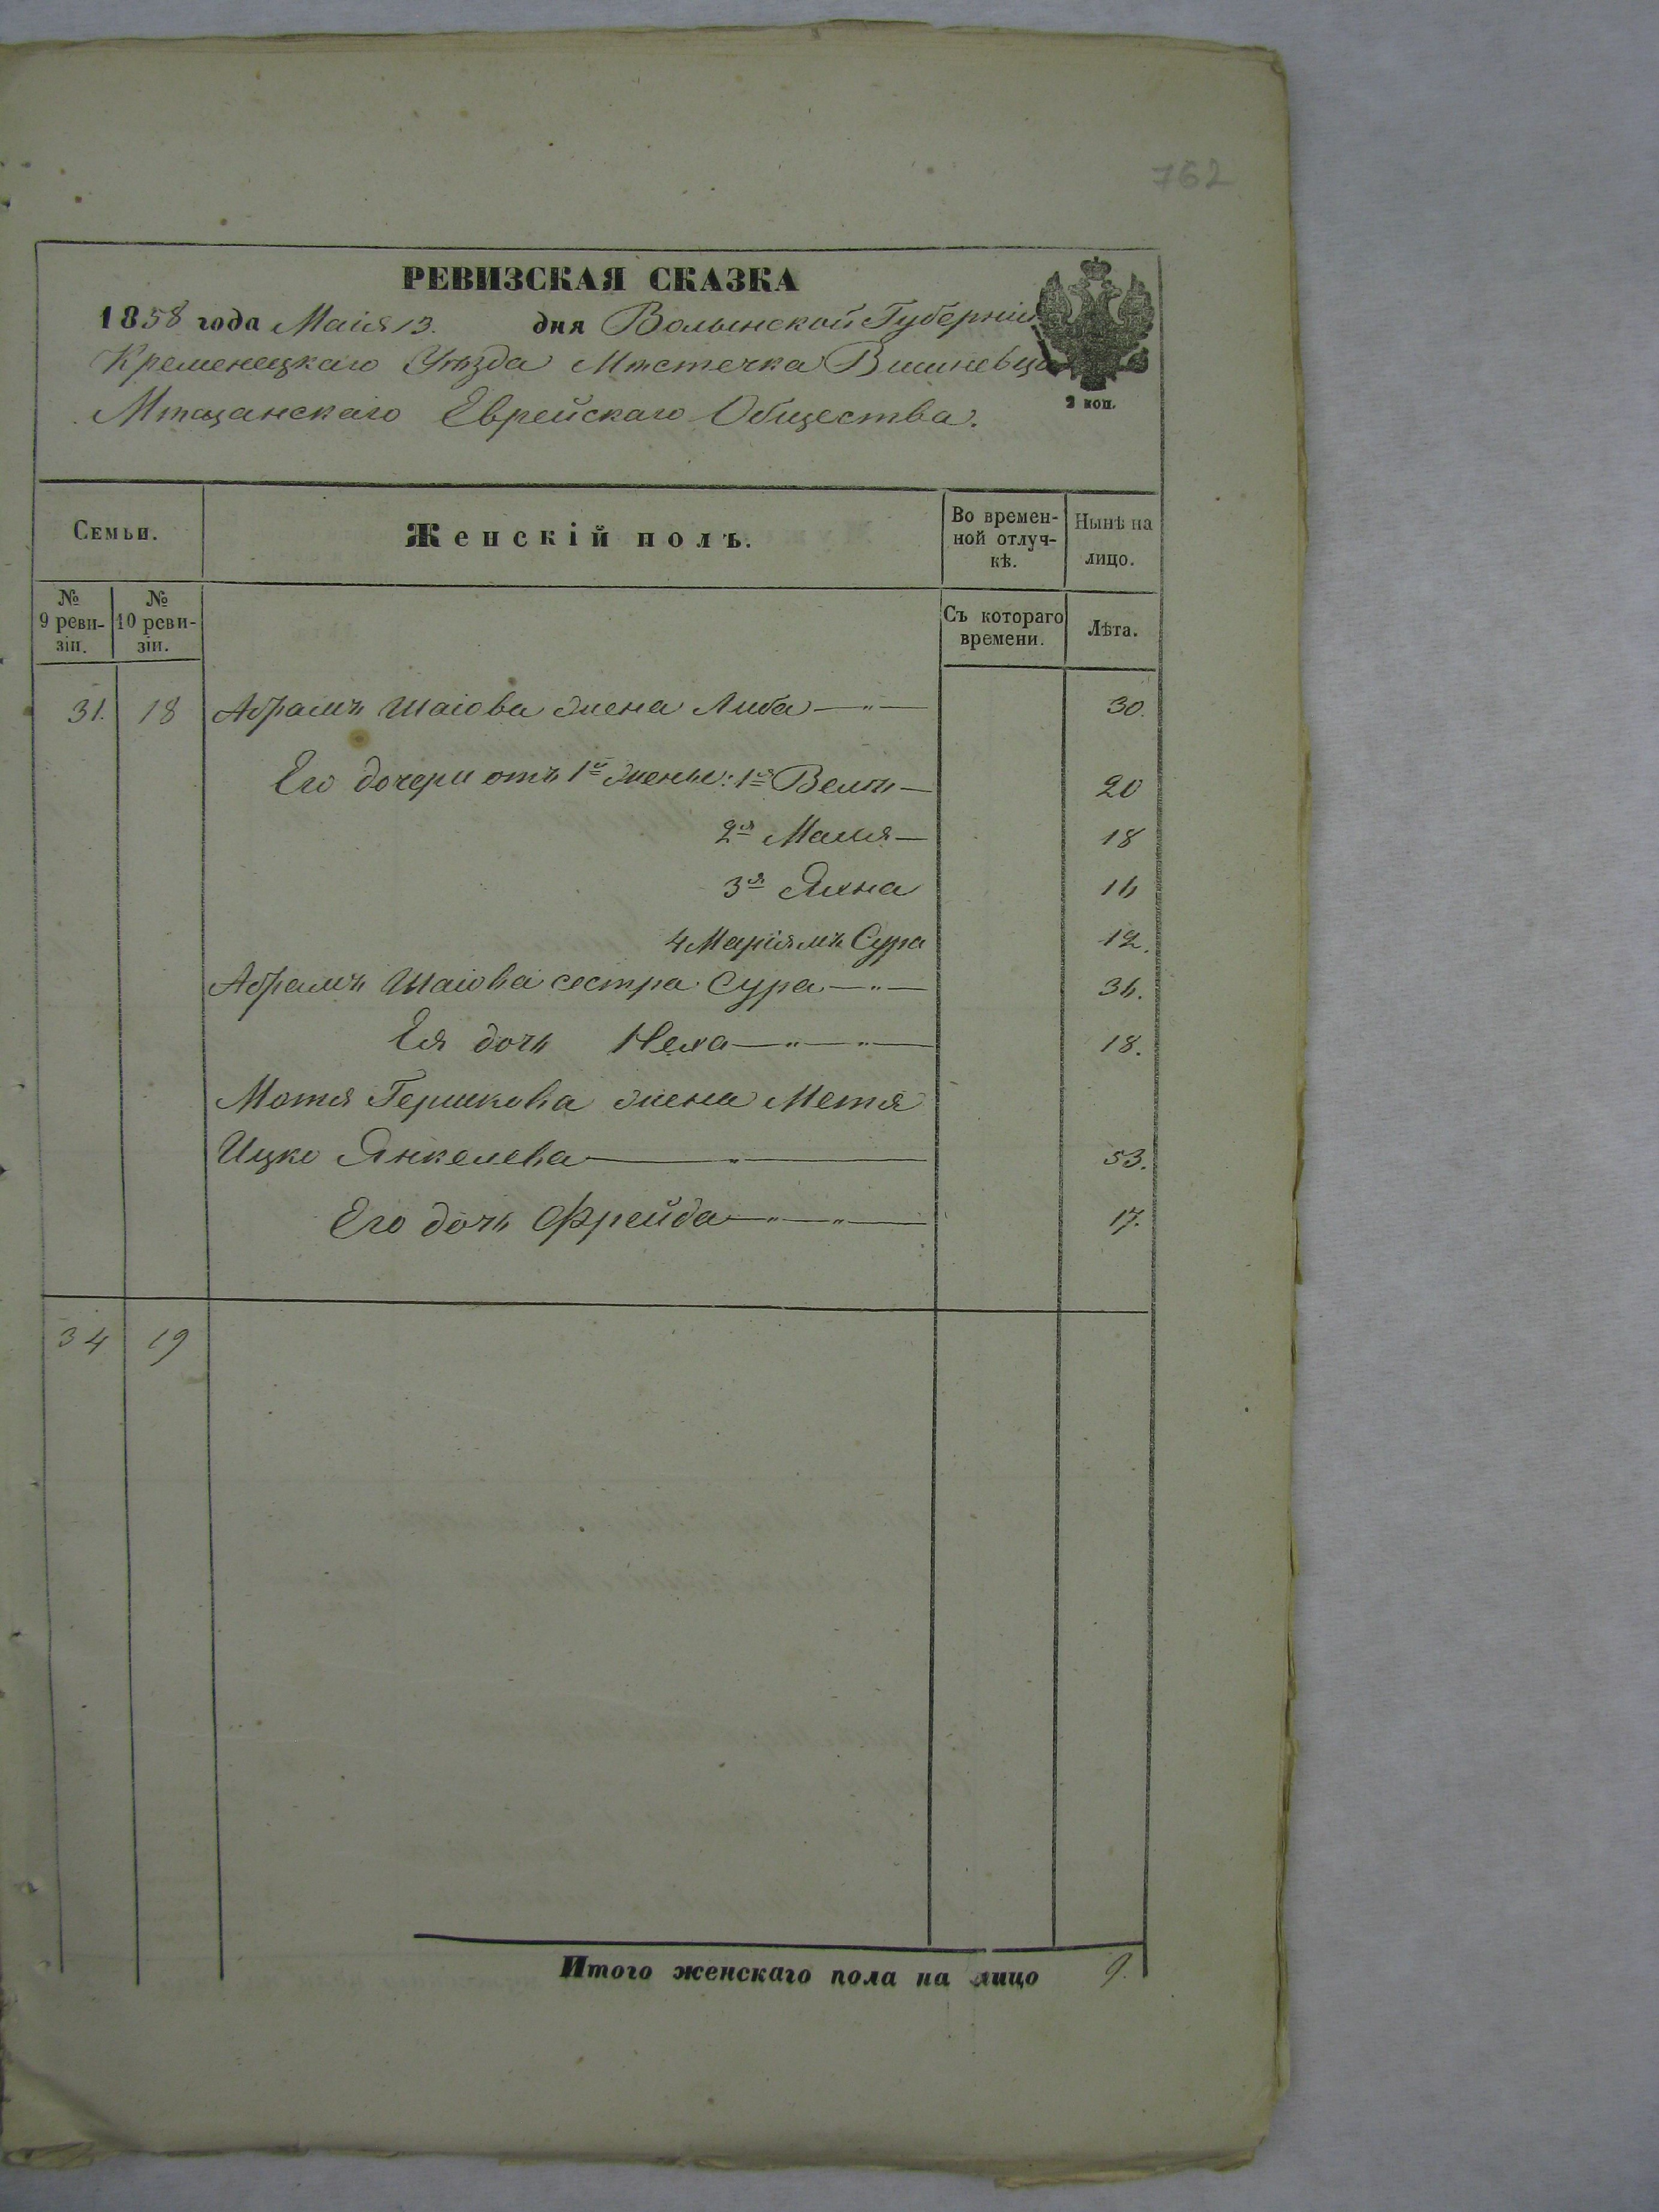 762
РЕВИЗСКАЯ СКАЗКА
1858 года Маія 13. дня Волынской Губерніи
Кременецкаго Уѣзда Мѣстечка Вишневца
Мѣщанскаго Еврейскаго Общества.
2 коп.
Семьи. Женскій полъ. Во времен-ной отлуч-кѣ. Нынѣ на лицо.
№ 9 реви-зіи. № 10 реви-зіи. Съ котораго времени. Лѣта.
31. 18 Абрамъ Шаіова жена Либа 30.
Его дочери отъ 1й жены: 1я 20
2я Маля 18
3я 16
4 Маріямъ Сура 12.
Абрамъ Шаіова сестра Сура 36.
Ея дочь Неха 18.
Мотя Гершкова жена Метя
Ицко Янкелева 53.
Его дочь Фрейда 17.
34 19
Итого женскаго пола на лицо 9.